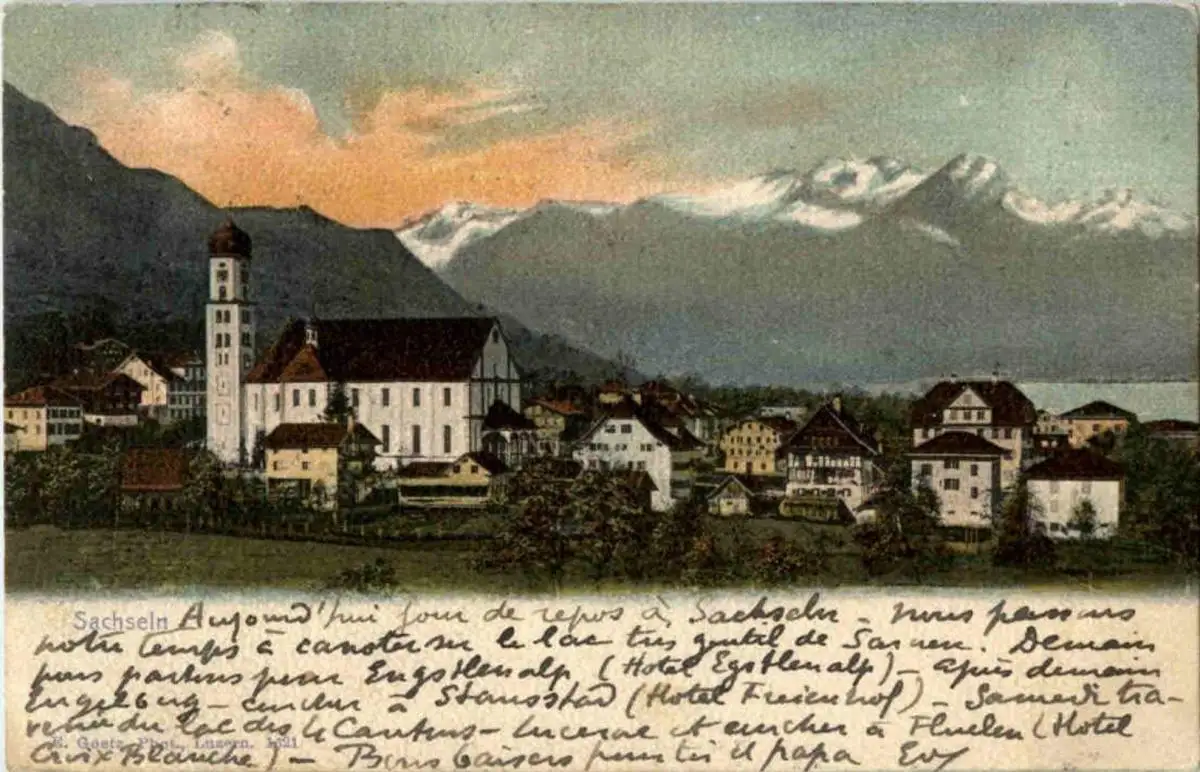 Sachseln Aujourd'hui jour de repos à Sachseln - nous passons
notre temps à canoter sur le lac très gentil de Sarnen. Demain
nous partons pour Engstlenalp (Hotel Egstlenalp) - après demain
Engelberg - coucher à Stansstad (Hotel Freienhof) - Samedi tra-
versée du lac des 4 Cantons - Lucerne et coucher à Fluelen (Hotel
E. Goetz, Phot., Luzern. 1521
Croix Blanche) - Bons baisers pour toi et papa